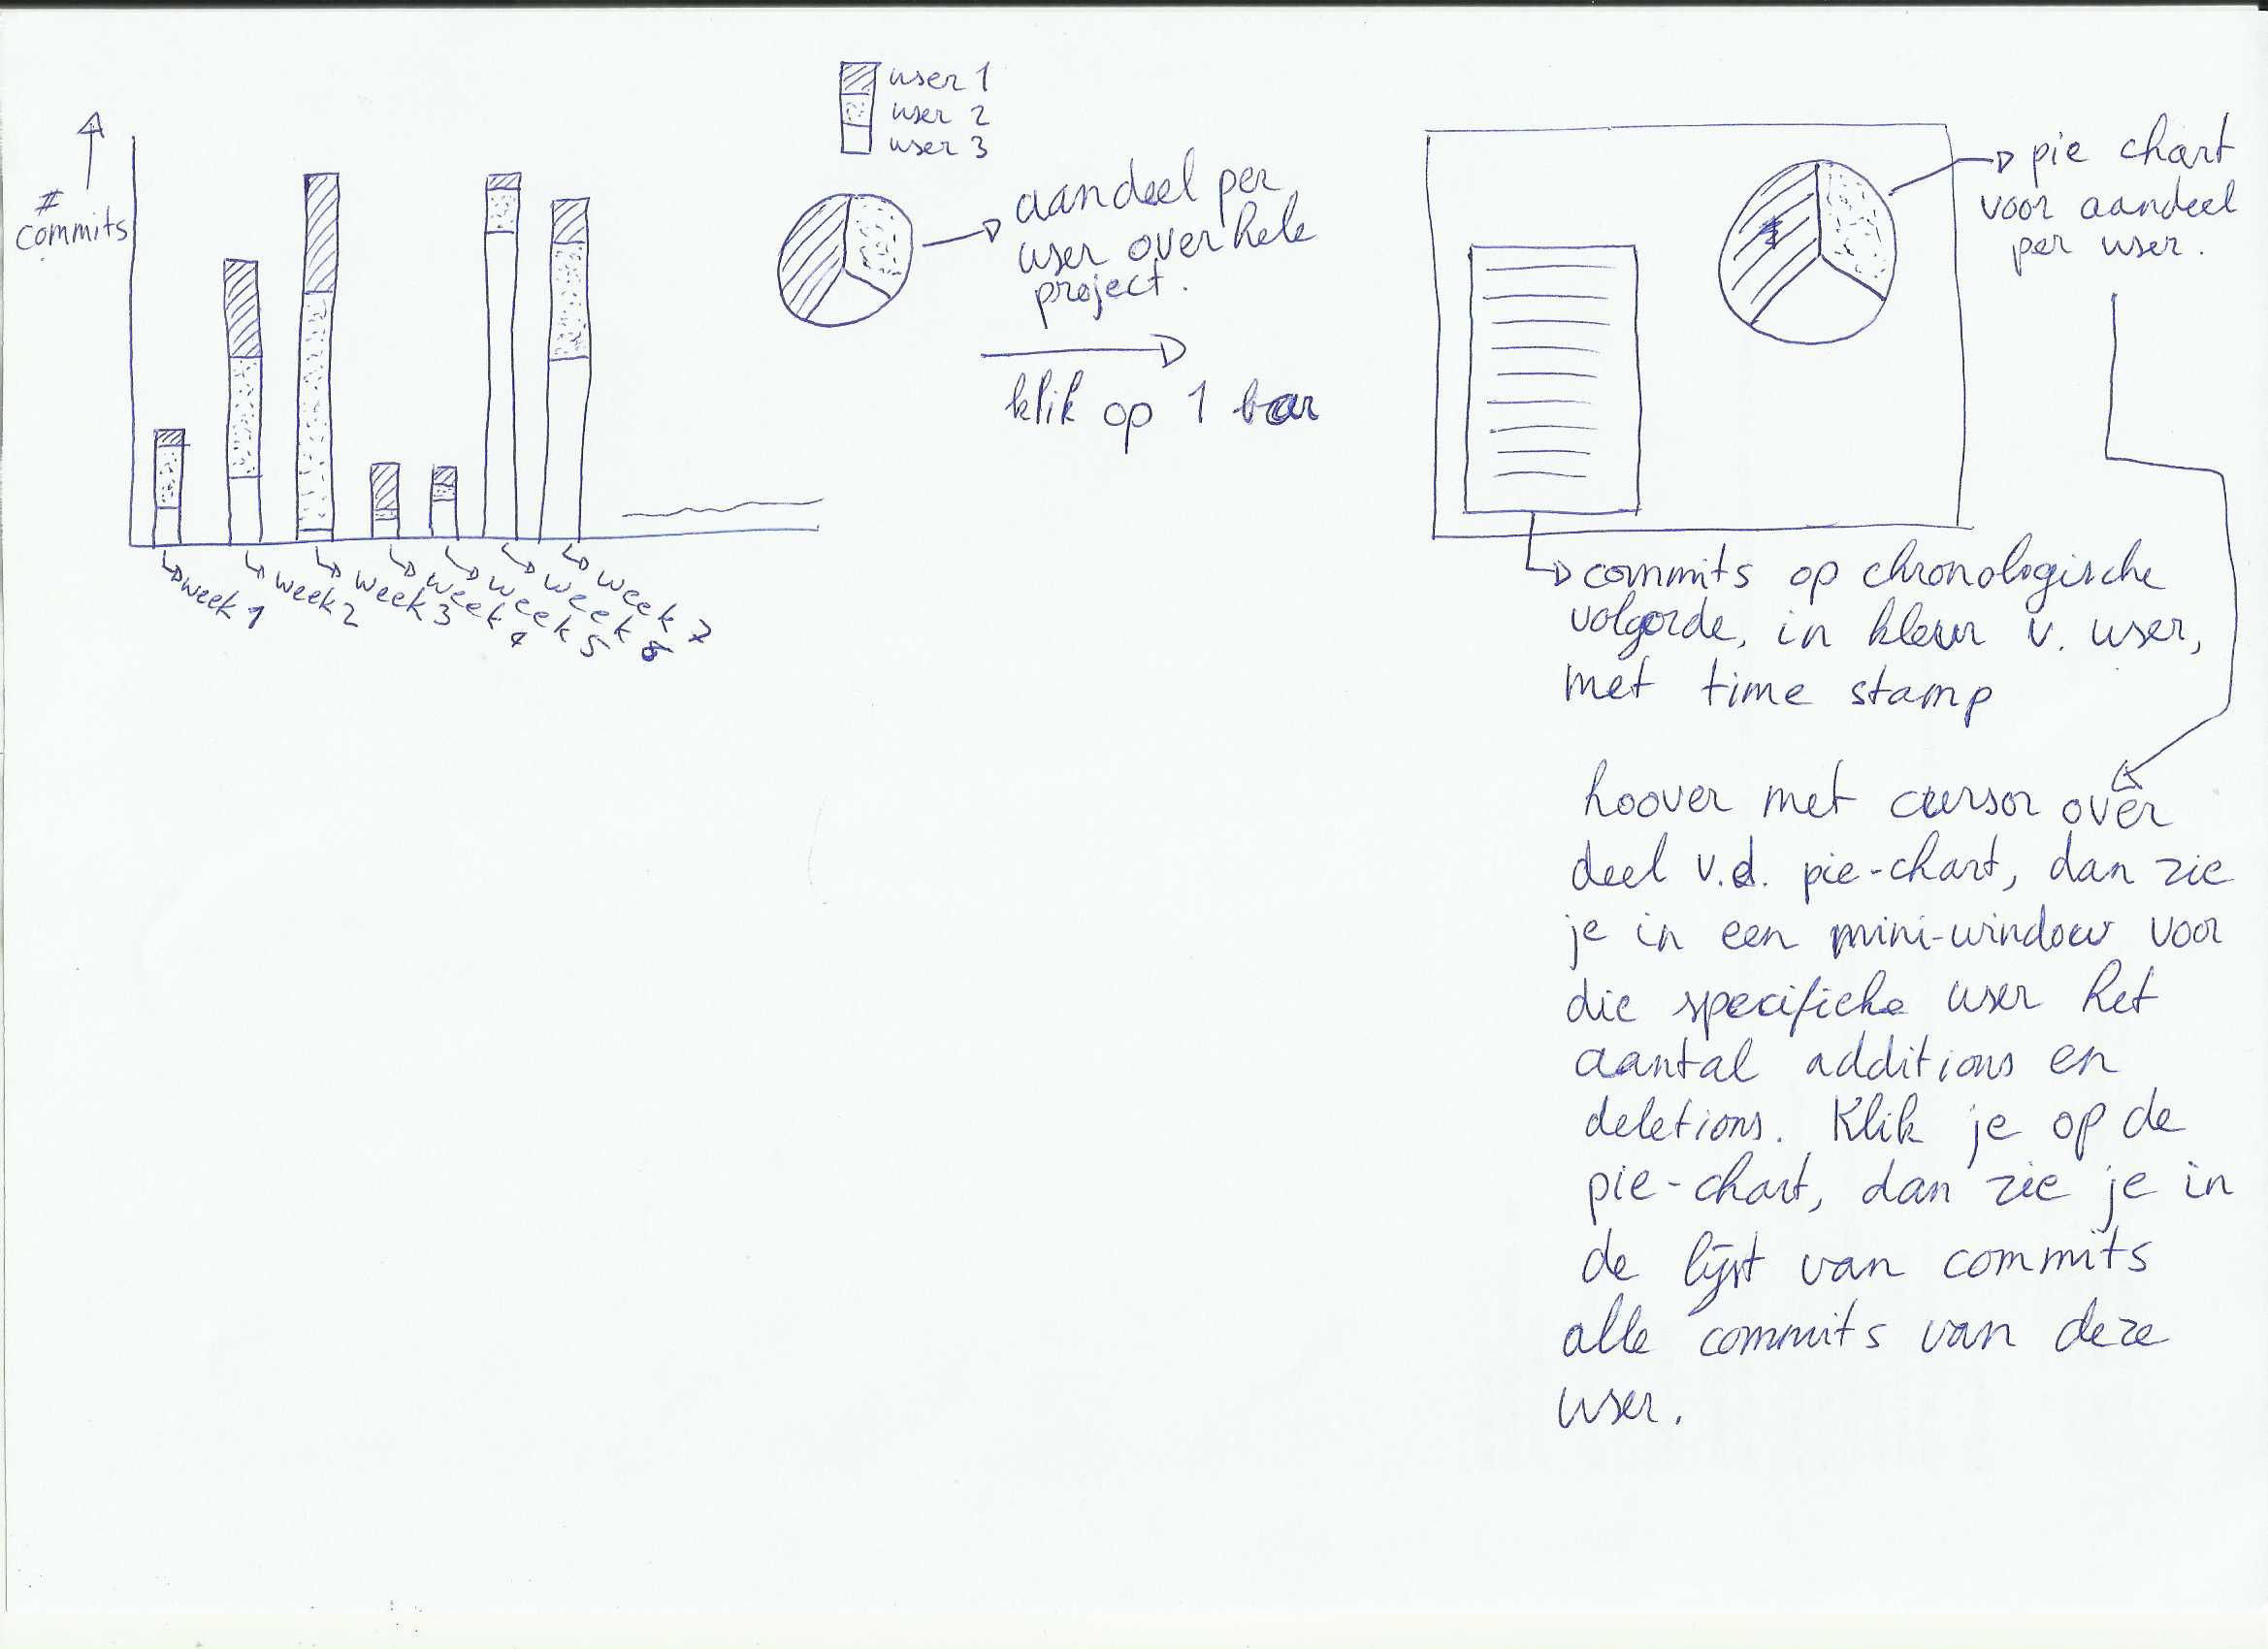 user 1
user 2
user 3
#
commits
week 1
week 2
week 3
week 4
week 5
week 6
week 7
aandeel per
user over hele
project.
klik op 1 bar
pie chart
voor aandeel
per user.
commits op chronologische
volgorde, in kleur v. user,
met time stamp
hoover met cursor over
deel v.d. pie-chart, dan zie
je in een mini-window voor
die specifieke user het
aantal additions en
deletions. Klik je op de
pie-chart, dan zie je in
de lijst van commits
alle commits van deze
user.